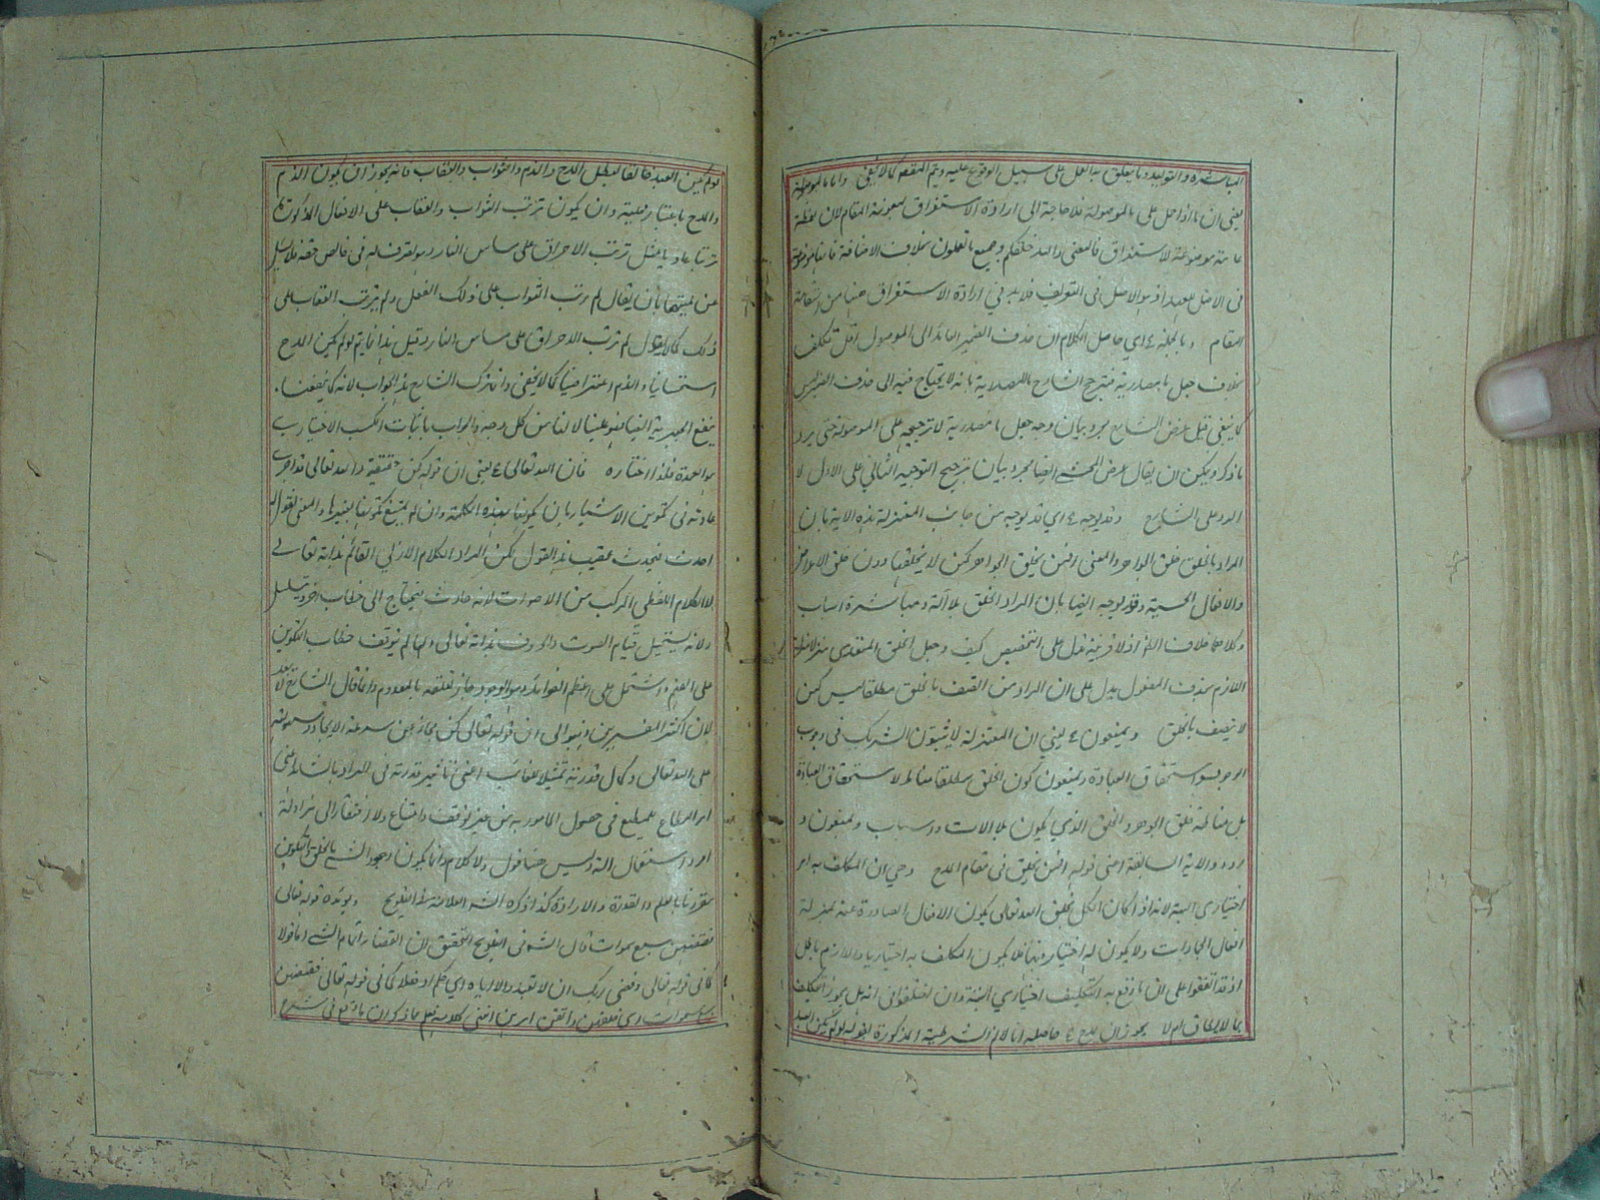 المباشرة والتوليد وما يتعلق به الفعل على سبيل الوقوع عليه ويتم المقصود كما لا يخفى واما بالموصولة
يعني ان ما اذا حمل على الموصولة فلا حاجة الى ارادة الاستغراق بمعونة المقام لان لفظة
عامة موضوعة للاستغراق فالمعنى والله خلقكم وجميع ما تعملون بخلاف الاضافة فانها موضوعة
في الاصل للعهد اذ هو الاصل في التعريف فلا بد في ارادة الاستغراق هنا من استعانة
المقام وبالجملة اي حاصل الكلام ان حذف الضمير العائد الى الموصول اقل تكلف
بخلاف جعل ما مصدرية فترجيح الشارح بالمصدرية بانه لا يحتاج فيه الى حذف الضمير ليس
كما ينبغي قيل غرض الشارح مجرد بيان وجه جعل ما مصدرية لا ترجيحه على الموصولة حتى يرد
ما ذكر ويمكن ان يقال غرض المحشي ايضا مجرد بيان ترجيح التوجيه الثاني على الاول لا
الرد على الشارح وقد يوجه اي قد يوجه من جانب المعتزلة هذه الاية بان
المراد بالخلق خلق الجواهر والمعنى افمن يخلق الجواهر كمن لا يخلقها دون خلق الاعراض
والافعال الحسية وقد يوجه ايضا بان المراد الخلق بلا آلة ومباشرة اسباب
وكلاهما خلاف الظاهر اذ لا قرينة تدل على التخصيص كيف وجعل الخلق المتعدي منزلا منزلة
اللازم بحذف المفعول يدل على ان المراد من اتصف بالخلق مطلقا ليس كمن
لا يتصف بالخلق ويمنعون يعني ان المعتزلة لا يثبتون الشريك في وجوب
الوجود واستحقاق العبادة ويمنعون كون الخلق مطلقا مناط لاستحقاق العبادة
بل مناطه خلق الجوهر والخلق الذي يكون بلا الات واسباب ويمنعون
ورود الاية السابقة اعني قوله افمن يخلق في مقام المدح وهي ان المكلف به امر
اختياري البتة لانه اذا كان الكل بخلق الله تعالى يكون الافعال الصادرة عنه بمنزلة
افعال الجمادات ولا يكون له اختيار فيها فلا يكون المكلف به اختياريا واللازم باطل
اذ قد اتفقوا على ان ما وقع به التكليف اختياري البتة وان اختلفوا في انه هل يجوز التكليف
بما لا يطاق ام لا يجوز ان حاصله انا لا نم الشرطية المذكورة لقوله لو لم يكن العبد
لو لم يكن العبد خالقا لبطل المدح والذم والثواب والعقاب فانه يجوز ان يكون الذم
والمدح باعتبار محلية وان يكون ترتب الثواب والعقاب على الافعال المذكورة
ترتبا عاديا مثل ترتب الاحراق على مساس النار وهو تصرف له في خالص حقه فلا يسئل
عن لميتها بان يقال لم رتب الثواب على ذلك الفعل ولم يترتب العقاب على
ذلك كما لا يقال لم ترتب الاحراق على مساس النار وقيل هذا انما يتم لو لم يكن المدح
استحسانيا والذم اعتراضيا كما لا يخفى وانما ترك الشارح هذا الجواب لانه كما ينفعنا
ينفع الجبرية ايضا فهو علينا لا لنا من كل وجه والجواب باثبات الكسب الاختياري
هو العمدة فلذا اختاره فان الله تعالى يعني ان قوله كن حقيقة والله تعالى قد اجرى
عادته في تكوين الاشياء بان يكونها بهذه الكلمة وان لم يمتنع تكوينها بغيرها والمعنى نقول له
احدث فيحدث عقيب هذا القول لكن المراد الكلام الازلي القائم بذاته تعالى
لا الكلام اللفظي المركب من الاصوات لانه حادث فيحتاج الى خطاب اخر ويتسلسل
ولانه يستحيل قيام الصوت والحروف بذاته تعالى ولما لم يتوقف خطاب التكوين
على الفهم واشتمل على اعظم الفوائد وهو الوجود جاز تعلقه بالمعدوم وانما قال الشارح
لان اكثر المفسرين ذهبوا الى ان قوله تعالى كن مجاز عن سرعة الايجاد وسهولته
على الله تعالى وكمال قدرته تمثيلا للغائب اعني تاثير قدرته في المراد بالشاهد اعني
امر المطاع للمطيع في حصول المامور به من غير توقف وامتناع ولا افتقار الى مزاولة
امر واستعمال آلة وليس هنا قول ولا كلام وانما يكون وجود الشيء بالخلق والتكوين
مقرونا بالعلم والقدرة والارادة كذا ذكره الشارح العلامة في التلويح ويؤيده قوله تعالى
فقضيهن سبع سموات قال الشارح في التلويح التحقيق ان القضاء اتمام الشيء اما قولا
كما في قوله تعالى وقضى ربك ان لا تعبدوا الا اياه اي حكم او فعلا كما في قوله تعالى فقضيهن
سبع سموات اي خلقهن واتقن امرهن انتهى كلامه فعلم ما ذكر ان ما وقع في شرح